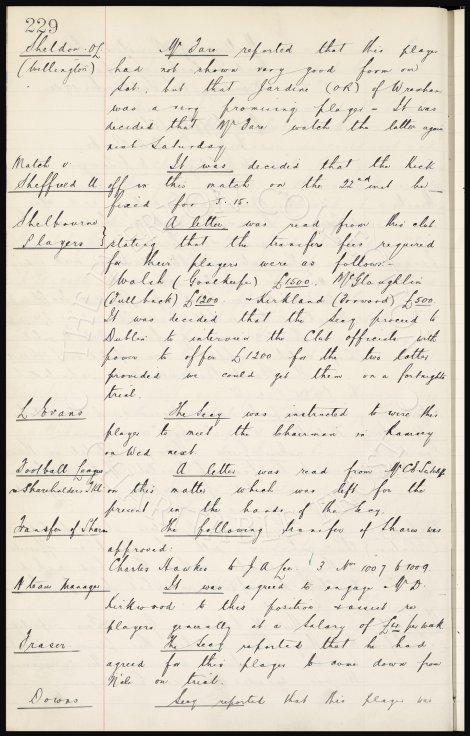 229
Sheldon. OL
(Wellington)
Mr Fare reported that this player
had not shown very good form on
Sat, but that Jardine (OR) of Wrexham
was a very promising player - It was
decided that Mr Fare watch the latter again
next Saturday
Match v
Sheffield U
It was decided that the Kick
off in this match on the 22nd inst be
fixed for 3.15.
Shelbourne
Players
A letter was read from this club
stating that the transfer fees required
for their players were as follows:-
Walsh (Goalkeeper) £1500. McGloughlin
(Full back) £1200. & Kirkland (Forward) £500.
It was decided that the Secy proceed to
Dublin to interview the Club officials with
power to offer £1200 for the two latter
provided we could get them on a fortnights
trial.
L Evans
The Secy was instructed to wire this
player to meet the Chairman in Ramsey
on Wed next.
Football League
& Shareholders
A letter was read from Mr C E Sutcliffe
on this matter which was left for the
present in the hands of the Secy.
Transfer of Shares
The following transfer of shares was
approved:
Charles Hawkes to J A Lee. 3 Nos 1007 to 1009.
A team Manager
It was agreed to engage Mr D.
Kirkwood to this position & assist re
players generally at a salary of per week.
Fraser
The Secy reported that he had
agreed for this player to come down from
on trial.
Downs
Secy reported that this player was